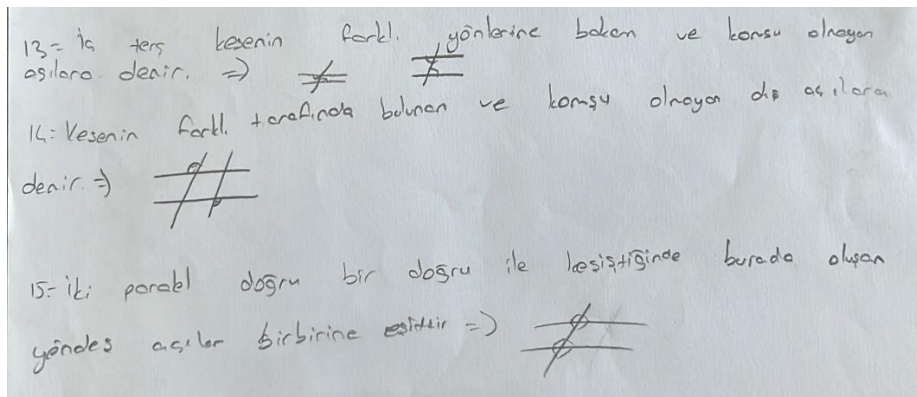 13= İç ters kesenin farkl. yönlerine bakan ve komsu olmayan
açılara denir. =>
14: Kesenin farkl. tarafında bulunan ve komşu olmayan dış açılara
denir. =>
15- iki paralel doğru bir doğru ile kesiştiğinde burada oluşan
yöndes açılar birbirine eşittir =>